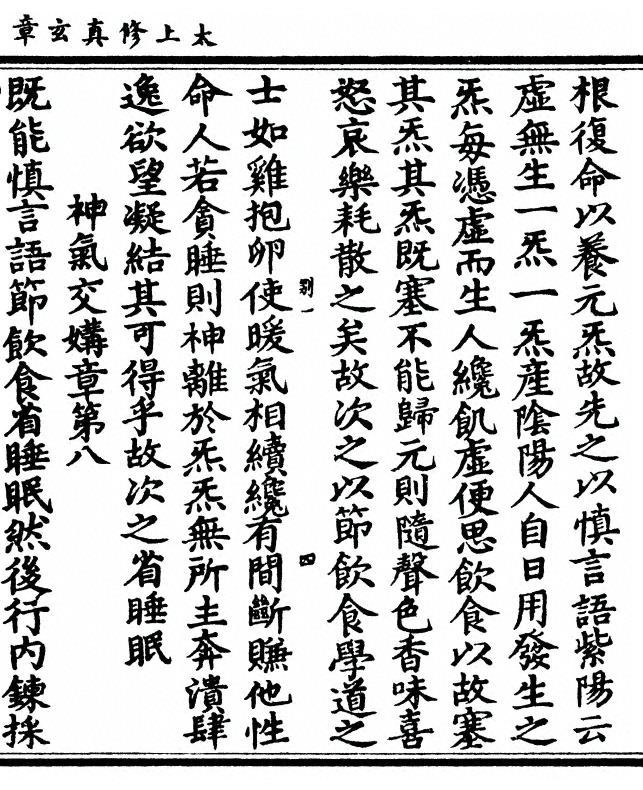 太上修真玄章
根復命以養元炁故先之以慎言語紫陽云
虛無生一炁一炁産陰陽人自日用發生之
炁每憑虛而生人纔飢虛便思飲食以故塞
其炁其炁既塞不能歸元則隨聲色香味喜
怒哀樂耗散之矣故次之以節飲食學道之
别一
四
士如雞抱卵使暖氣相續纔有間斷賺他性
命人若貪睡則神離於炁炁無所主奔潰肆
逸欲望凝結其可得乎故次之省睡眠
神氣交媾章第八
既能慎言語節飲食省睡眠然後行内鍊採